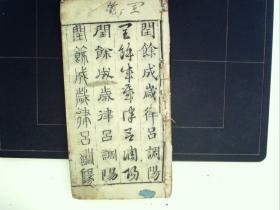 閏餘成歲律呂調陽
閏餘成歲律呂調陽
閏餘成歲律呂調陽
閏餘成歲律呂調陽